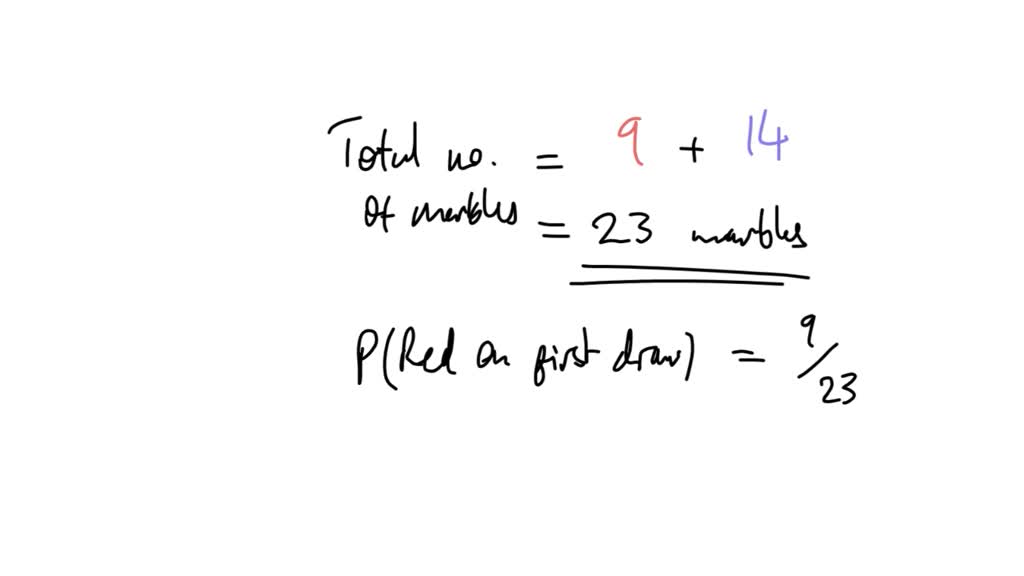 Total no. = 9 + 14
of marbles = 23 marbles
P(Red on first draw) = 9/23